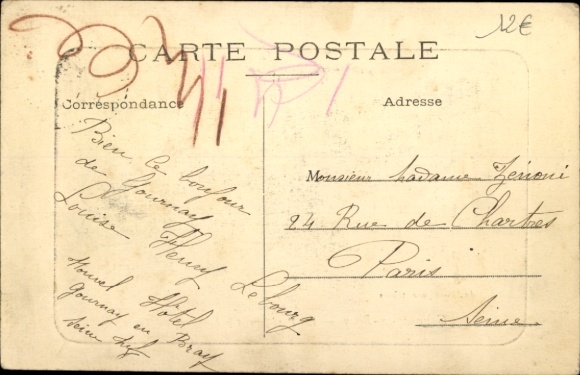 12€
CARTE POSTALE
Correspondance
Adresse
Bien le bonjour
de Gournay
Louise Henry Lebourg
Nouvel Hôtel
Gournay en Bray
Seine Inf
Monsieur Madame Zénoni
24 Rue de Chartres
Paris
Seine